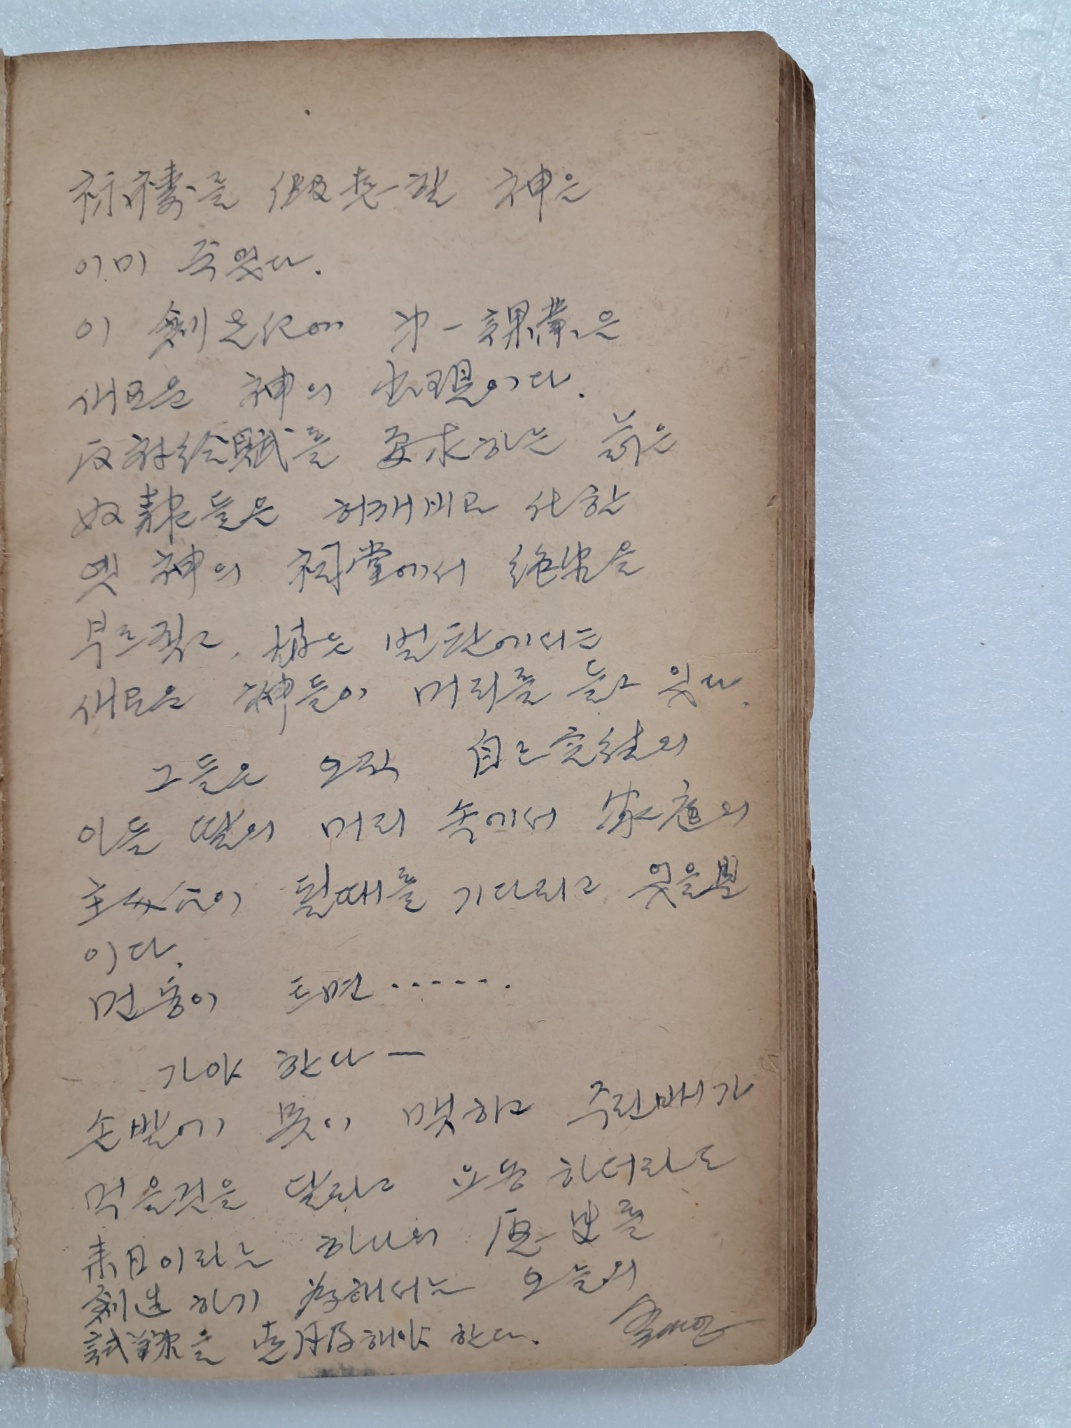 祈禱를 假裝한 神은
이미 죽었다.
이 創世紀에 第一課業은
새로운 神의 出現이다.
反對給賦를 要求하는
奴隸들은 허깨비로 化한
옛 神의 祠堂에서 絶望을
부르짖고, 벌판에서는
새로운 神들이 머리를 들고 있다.
그들은 오직 自己完結의
아들 딸의 머리 속에서 家庭의
主人公이 될때를 기다리고 있을뿐
이다.
먼동이 트면 ......
가야 한다 —
손발에 못이 맺히고 주린배가
먹을것을 달라고 요동 하더라도
来日이라는 하나의 歷史를
創造하기 爲해서는 오늘의
試鍊을 克服해야 한다.